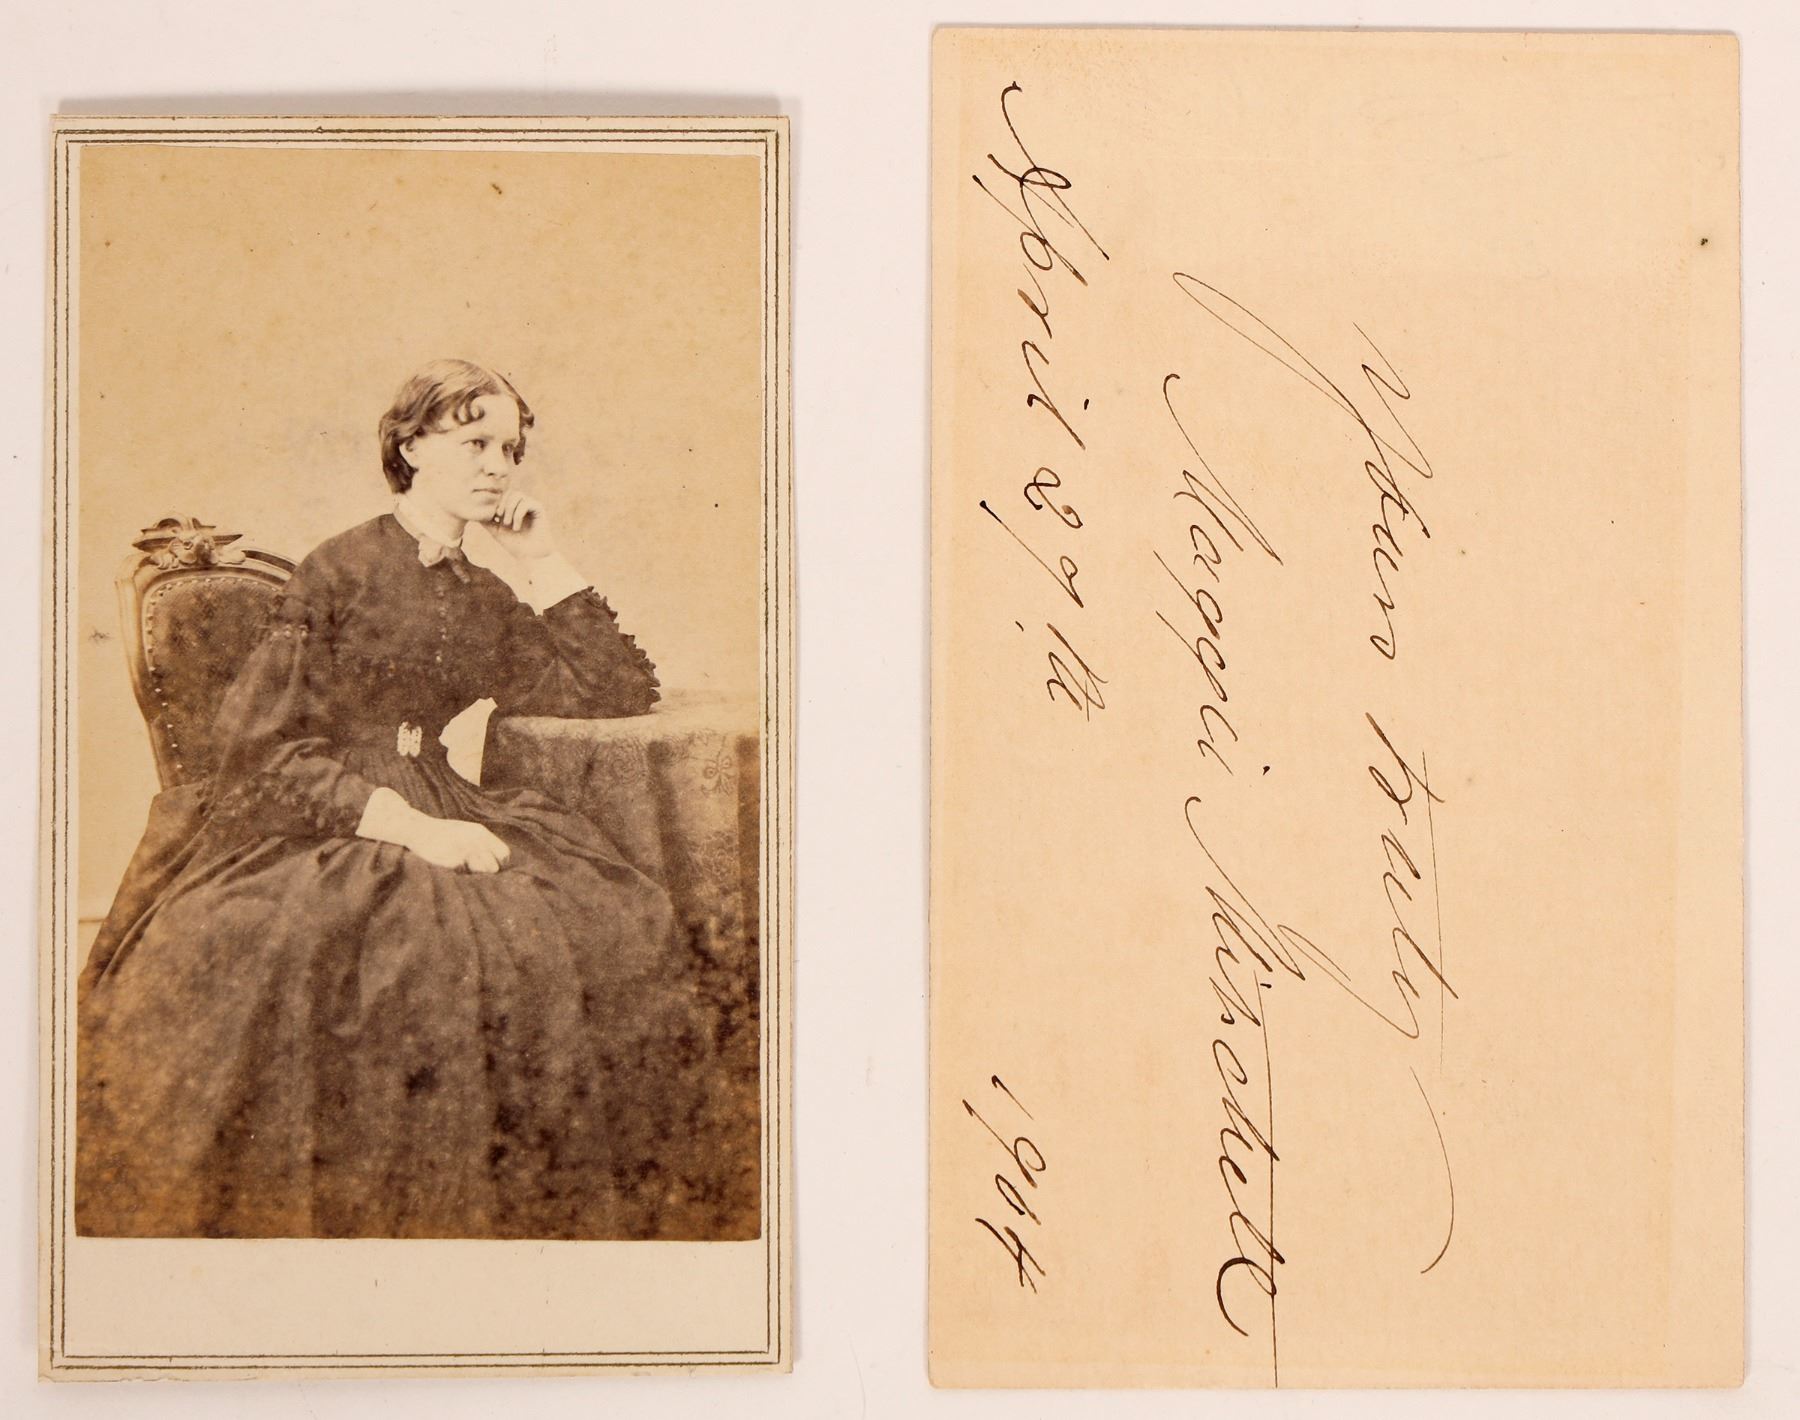 Yours truly
Maggie Mitchell
April 29th 1984